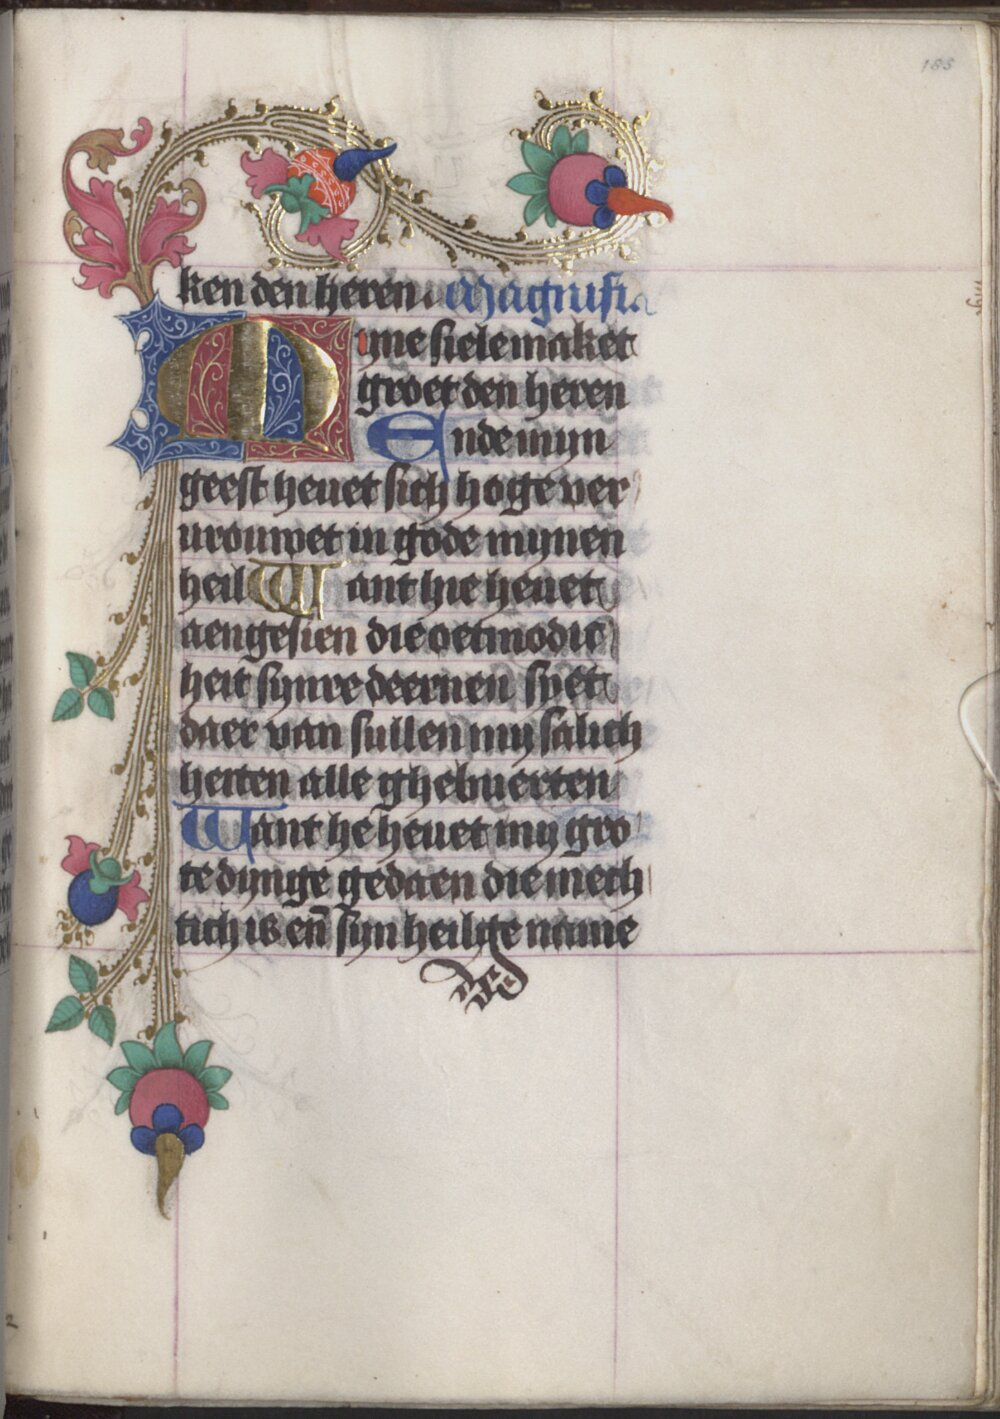 183
ken den heren. Magnifi
Mine siele maket
groet den heren
Ende mijn
geest heuet sich hoge ver
urouwet in gode mijnen
heil Want hie heuet
aengesien die oetmodic
heit synre deernen syet
daer van sullen my salich
heiten alle ghebuerten
Want he heuet my gro
te dynge gedaen die mech
tich is eñ syn heilige name